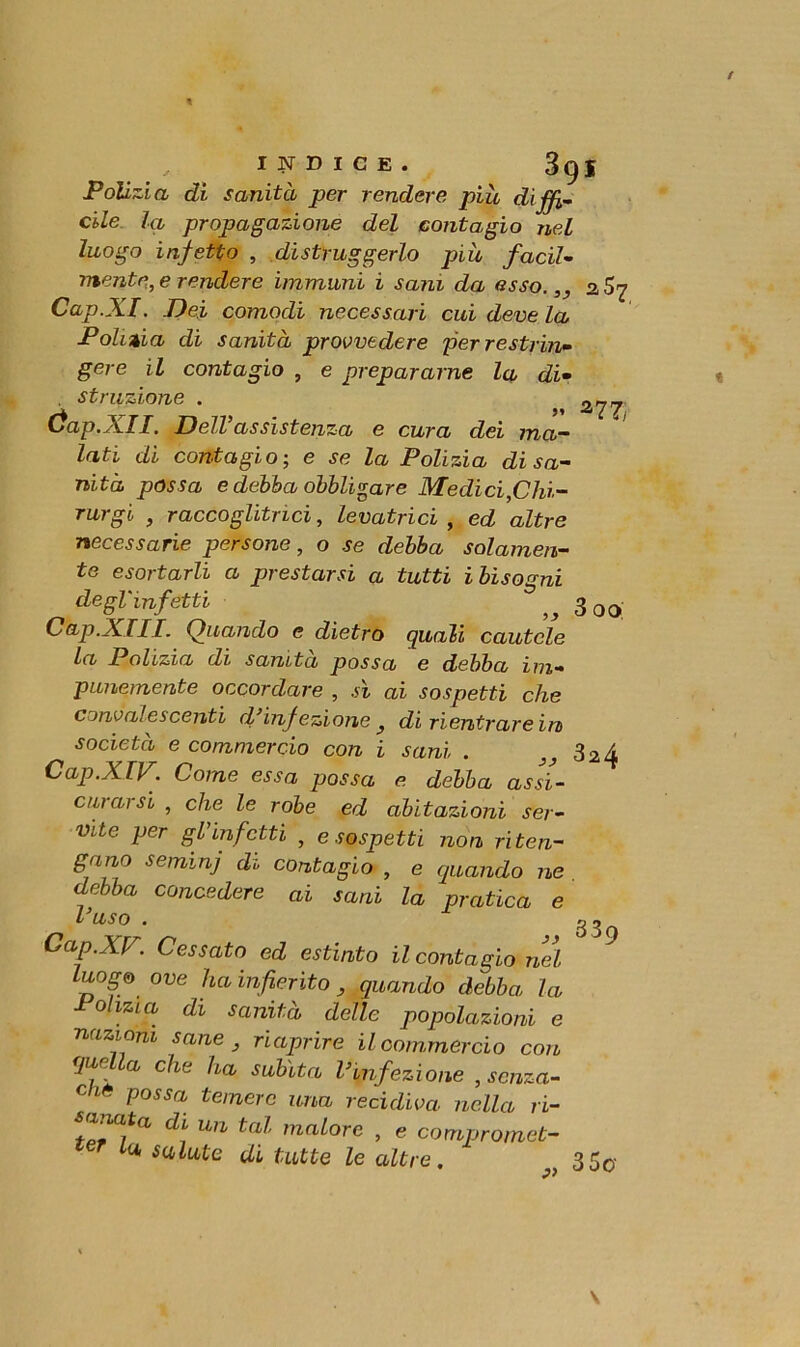 INDICE. 391
Polizia di sanità per rendere più diffi-
cile la propagazione del contagio nel
luogo infetto , distruggerlo più facil-
mente, e rendere immuni i sani da esso. ,, 257
Cap.XI. Dei comodi necessari cui deve la
Polizia di sanità provvedere per restrin-
gere il contagio , e prepararne la di-
struzione . ,, 277
Cap.XII. Dell'assistenza e cura dei ma-
lati di contagio; e se la Polizia di sa-
nità possa e debba obbligare Medici,Chi-
rurgi , raccoglitrici, levatrici , ed altre
necessarie persone, o se debba solamen-
te esortarli a prestarsi a tutti i bisogni
degl'infetti ,, 300
Cap.XIII. Quando e dietro quali cautele
la Polizia di sanità possa e debba im-
punemente occordare , sì ai sospetti che
convalescenti d'infezione, di rientrare in
società e commercio con i sani . ,, 324
Cap.XIV. Come essa possa e debba assi-
curarsi , che le robe ed abitazioni ser-
vite per gl'infetti , e sospetti non riten-
gano seminj di contagio , e quando ne
debba concedere ai sani la pratica e
l'uso . ,, 339
Cap.XV. Cessato ed estinto il contagio nel
luogo ove ha infierito, quando debba la
Polizia di sanità delle popolazioni e
nazioni sane, riaprire il commercio con
quella che ha subita l'infezione , senza-
chè possa temere una recidiva nella ri-
sanata di un tal malore , e compromet-
ter la salute di tutte le altre. ,, 350